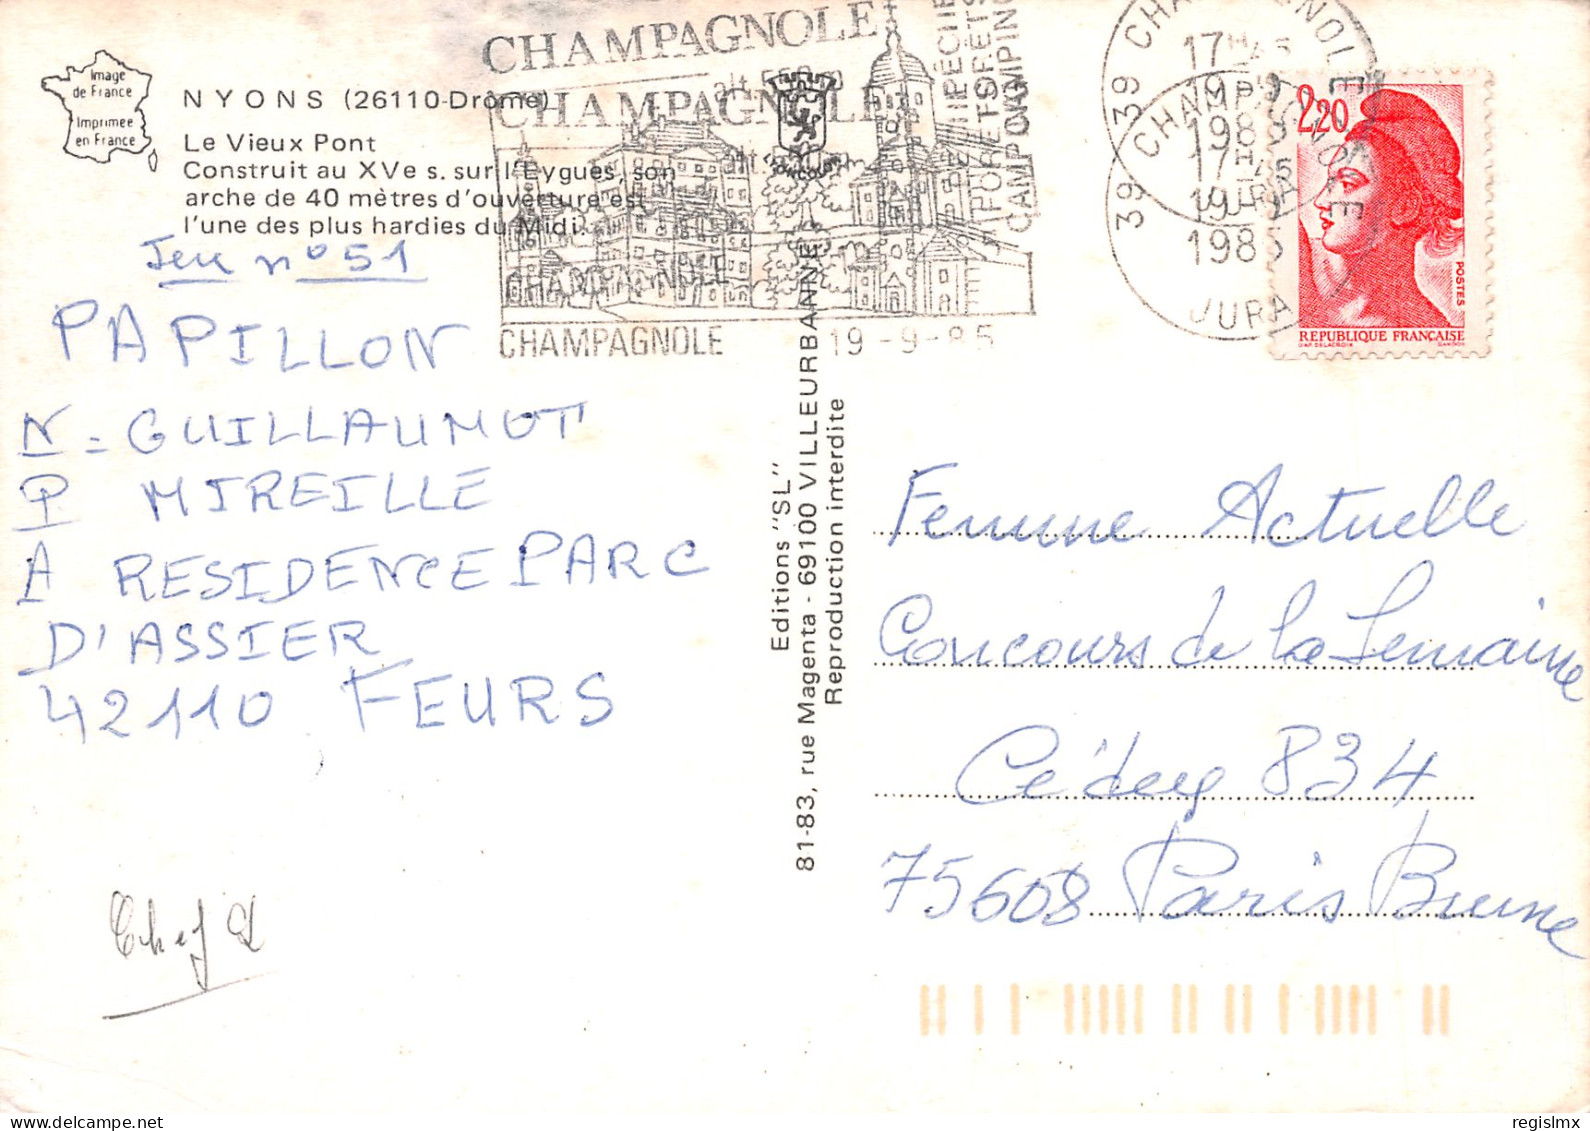 Image
de France
Imprimée
en France
NYONS (26110-Drôme)
Le Vieux Pont
Construit au XVe s. sur l'Eygues, son
arche de 40 mètres d'ouverture est
l'une des plus hardies du Midi.
Jeu n° 51
PAPILLON
N = GUILLAUMOT
P MIREILLE
A RESIDENCE PARC
D'ASSIER
42110 FEURS
CHAMPAGNOLE
CHAMPAGNOLE
CHAMPAGNOLE
CHAMPAGNOLE
19-9-85
39 CHAMPAGNOLE
17H45
19-9
1985
JURA
39 CHAMPAGNOLE
17H45
19-9
1985
JURA
2,20
POSTES
REPUBLIQUE FRANÇAISE
D'AP. DELACROIX GANDON
Editions "SL"
81-83, rue Magenta - 69100 VILLEURBANNE
Reproduction interdite
Femme Actuelle
Concours de la Semaine
Cédex 834
75608 Paris Brune
regislmx